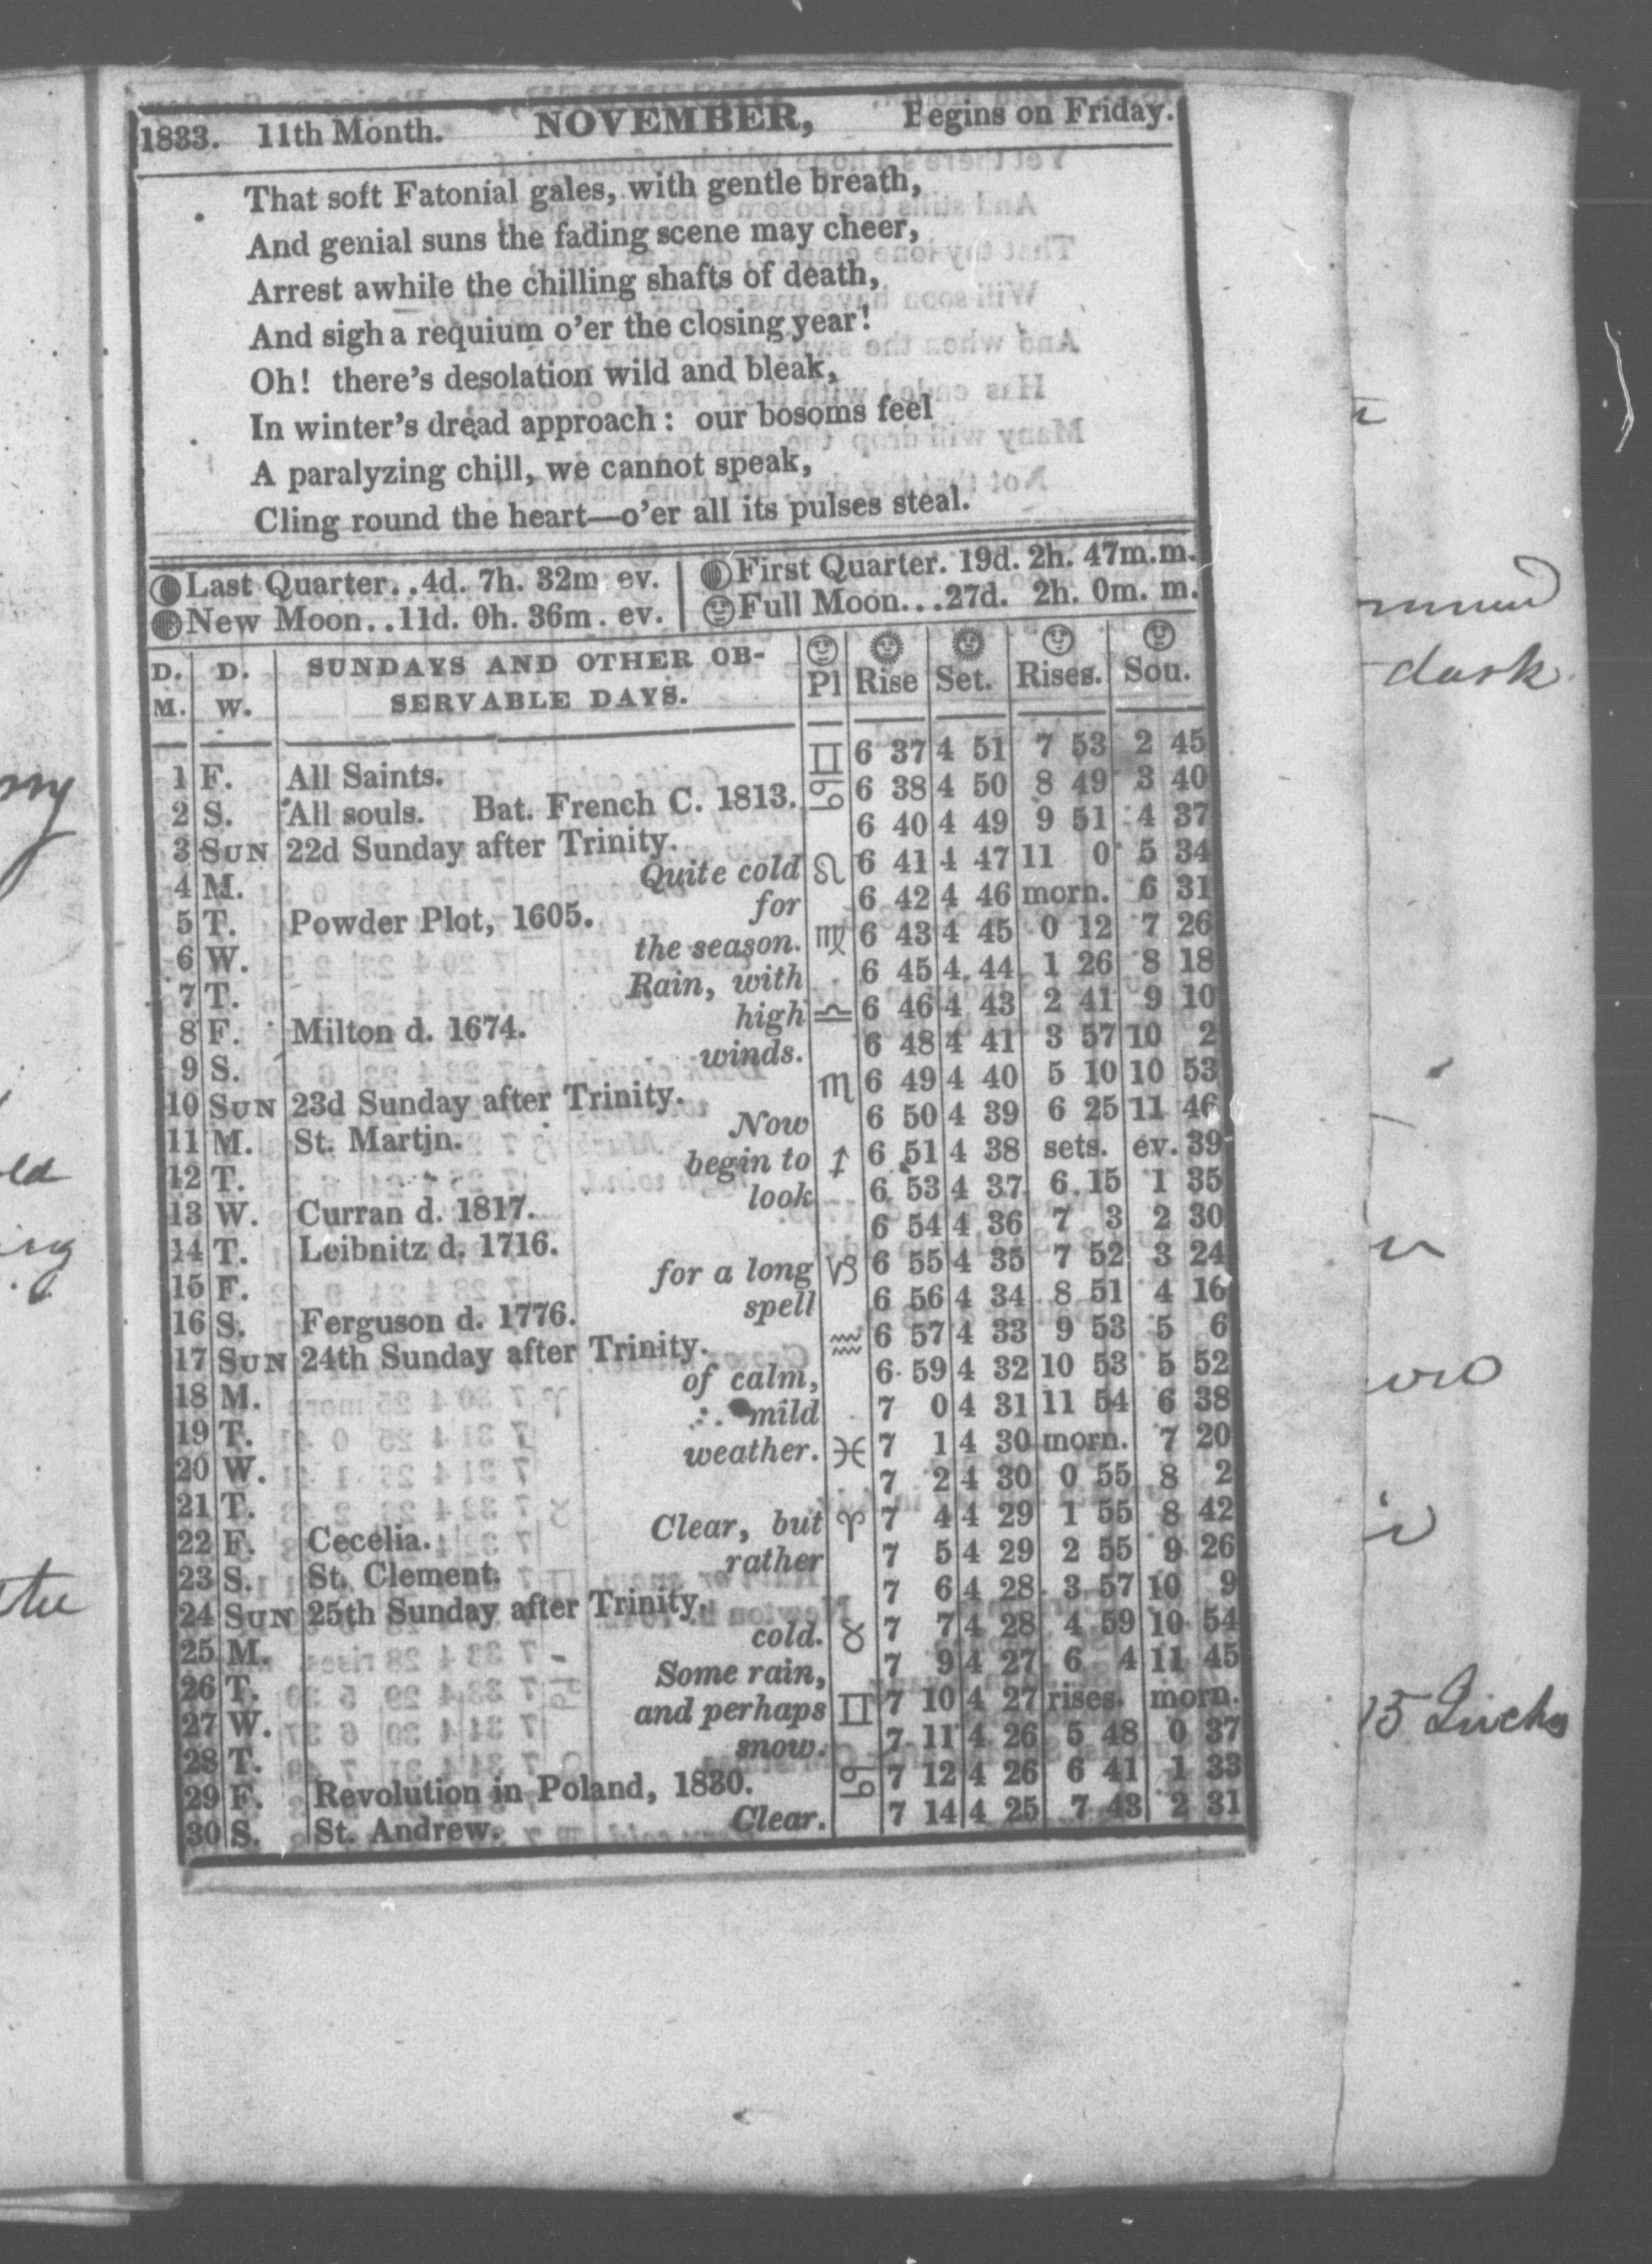 1833. 11th Month. NOVEMBER, Begins on Friday.
That soft Fatonial gales, with gentle breath,
And genial suns the fading scene may cheer,
Arrest awhile the chilling shafts of death,
And sigh a requium o'er the closing year!
Oh! there's desolation wild and bleak,
In winter's dread approach: our bosoms feel
A paralyzing chill, we cannot speak,
Cling round the heart—o'er all its pulses steal.
Last Quarter..4d. 7h. 32m ev. First Quarter. 19d. 2h. 47m.m.
New Moon..11d. 0h. 36m. ev. Full Moon...27d. 2h. 0m. m.
D. D. SUNDAYS AND OTHER OB-
M. W. SERVABLE DAYS. Pl Rise Set. Rises. Sou.
1 F. All Saints. ♊ 6 37 4 51 7 53 2 45
2 S. All souls. Bat. French C. 1813. ♋ 6 38 4 50 8 49 3 40
3 SUN 22d Sunday after Trinity. 6 40 4 49 9 51 4 37
4 M. Quite cold ♌ 6 41 4 47 11 0 5 34
5 T. Powder Plot, 1605. for 6 42 4 46 morn. 6 31
6 W. the season. ♍ 6 43 4 45 0 12 7 26
7 T. Rain, with 6 45 4 44 1 26 8 18
8 F. Milton d. 1674. high ♎ 6 46 4 43 2 41 9 10
9 S. winds. 6 48 4 41 3 57 10 2
10 SUN 23d Sunday after Trinity. ♏ 6 49 4 40 5 10 10 53
11 M. St. Martin. Now 6 50 4 39 6 25 11 46
12 T. begin to ♐ 6 51 4 38 sets. ev. 39
13 W. Curran d. 1817. look 6 53 4 37 6 15 1 35
14 T. Leibnitz d. 1716. 6 54 4 36 7 3 2 30
15 F. for a long ♑ 6 55 4 35 7 52 3 24
16 S. Ferguson d. 1776. spell 6 56 4 34 8 51 4 16
17 SUN 24th Sunday after Trinity. ♒ 6 57 4 33 9 53 5 6
18 M. of calm, 6 59 4 32 10 53 5 52
19 T. mild 7 0 4 31 11 54 6 38
20 W. weather. ♓ 7 1 4 30 morn. 7 20
21 T. 7 2 4 30 0 55 8 2
22 F. Cecelia. Clear, but ♈ 7 4 4 29 1 55 8 42
23 S. St. Clement. rather 7 5 4 29 2 55 9 26
24 SUN 25th Sunday after Trinity. 7 6 4 28 3 57 10 9
25 M. cold. ♉ 7 7 4 28 4 59 10 54
26 T. Some rain, 7 9 4 27 6 4 11 45
27 W. and perhaps ♊ 7 10 4 27 rises. morn.
28 T. snow. 7 11 4 26 5 48 0 37
29 F. Revolution in Poland, 1830. ♋ 7 12 4 26 6 41 1 33
30 S. St. Andrew. Clear. 7 14 4 25 7 43 2 31
dark